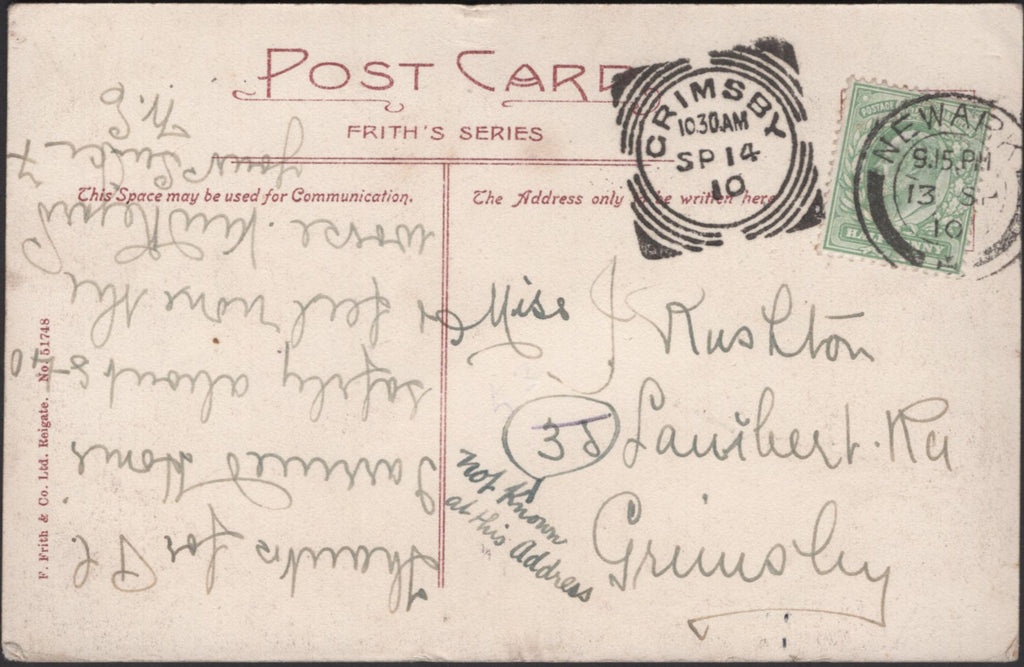 POST CARD
FRITH'S SERIES
This Space may be used for Communication.
The Address only to be written here
F. Frith & Co. Ltd. Reigate. No. 51748
GRIMSBY
10.30AM
SP 14
10
POSTAGE
HALFPENNY
NEWARK
9.15.PM
13 SP
10
Miss J Rushton
35 Lambert Rd
Grimsby
not known
at this Address
Thanks for P.C.
Jarrived Home
safely about 8-40
& feel none the
worse. Kind Regards
Your Sincerely